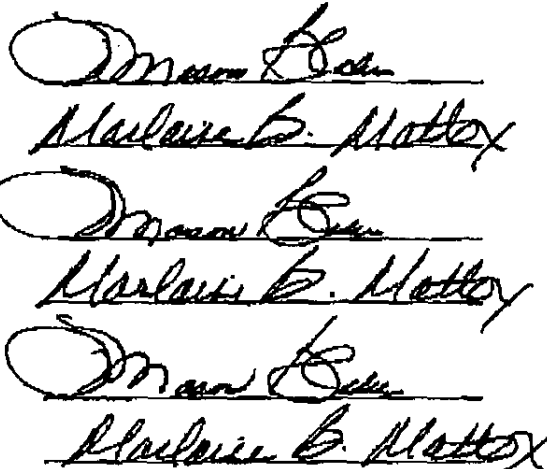 Mason
Marlaise B. Mattox
Mason
Marlaise B. Mattox
Mason
Marlaise B. Mattox